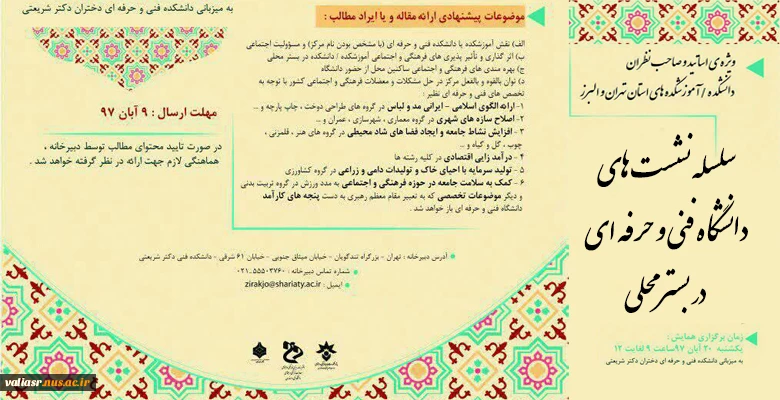 ویژه‌ی اساتید و صاحب نظران
دانشکده / آموزشکده های استان تهران و البرز
سلسله نشست های
دانشگاه فنی و حرفه ای
در بستر محلی
زمان برگزاری همایش :
یکشنبه ۲۰ آبان ۹۷ ساعت ۹ لغایت ۱۲
به میزبانی دانشکده فنی و حرفه ای دختران دکتر شریعتی
موضوعات پیشنهادی ارائه مقاله و یا ایراد مطالب :
الف) نقش آموزشکده یا دانشکده فنی و حرفه ای (با مشخص بودن نام مرکز) و مسوولیت اجتماعی
ب) اثر گذاری و تأثیر پذیری های فرهنگی و اجتماعی آموزشکده / دانشکده در بستر محلی
ج) بهره مندی های فرهنگی و اجتماعی ساکنین محل از حضور دانشگاه
د) توان بالقوه و بالفعل مرکز در حل مشکلات و معضلات فرهنگی و اجتماعی کشور با توجه به
تخصص های فنی و حرفه ای نظیر :
۱- ارائه الگوی اسلامی - ایرانی مد و لباس در گروه های طراحی دوخت ، چاپ پارچه و ...
۲- اصلاح سازه های شهری در گروه معماری ، شهرسازی ، عمران و ...
۳- افزایش نشاط جامعه و ایجاد فضا های شاد محیطی در گروه های هنر ، قلمزنی ،
چوب ، گل و گیاه و ...
۴- درآمد زایی اقتصادی در کلیه رشته ها
۵- تولید سرمایه با احیای خاک و تولیدات دامی و زراعی در گروه کشاورزی
۶- کمک به سلامت جامعه در حوزه فرهنگی و اجتماعی به مدد ورزش در گروه تربیت بدنی
و دیگر موضوعات تخصصی که به تعبیر مقام معظم رهبری به دست پنجه های کارآمد
دانشگاه فنی و حرفه ای باز خواهد شد .
به میزبانی دانشکده فنی و حرفه ای دختران دکتر شریعتی
مهلت ارسال : ۹ آبان ۹۷
در صورت تایید محتوای مطالب توسط دبیرخانه ،
هماهنگی لازم جهت ارائه در نظر گرفته خواهد شد .
آدرس دبیرخانه : تهران - بزرگراه تندگویان - خیابان میثاق جنوبی - خیابان ۶۱ شرقی - دانشکده فنی دکتر شریعتی
شماره تماس دبیرخانه : ۵۵۵۰۳۷۶۰-۰۲۱
ایمیل : zirakjo@shariaty.ac.ir
valiasr.nus.ac.ir